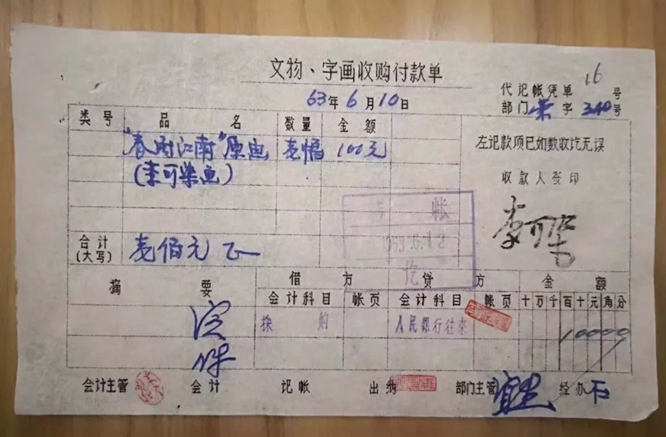 文物、字画收购付款单
63年6月10日
代记帐凭单 16号
部门 荣字 340号
类号 品名 数量 金额
"春雨江南"原画 壹幅 100元
(李可染画)
左记款项已如数收讫无误
收款人签印
李可染
合计(大写) 壹佰元正
帐
讫
摘要 借方 贷方 金额
会计科目 帐页 会计科目 帐页 十万千百十元角分
采购 人民银行往来 10000
会计主管 会计 记帐 出纳 部门主管 经办